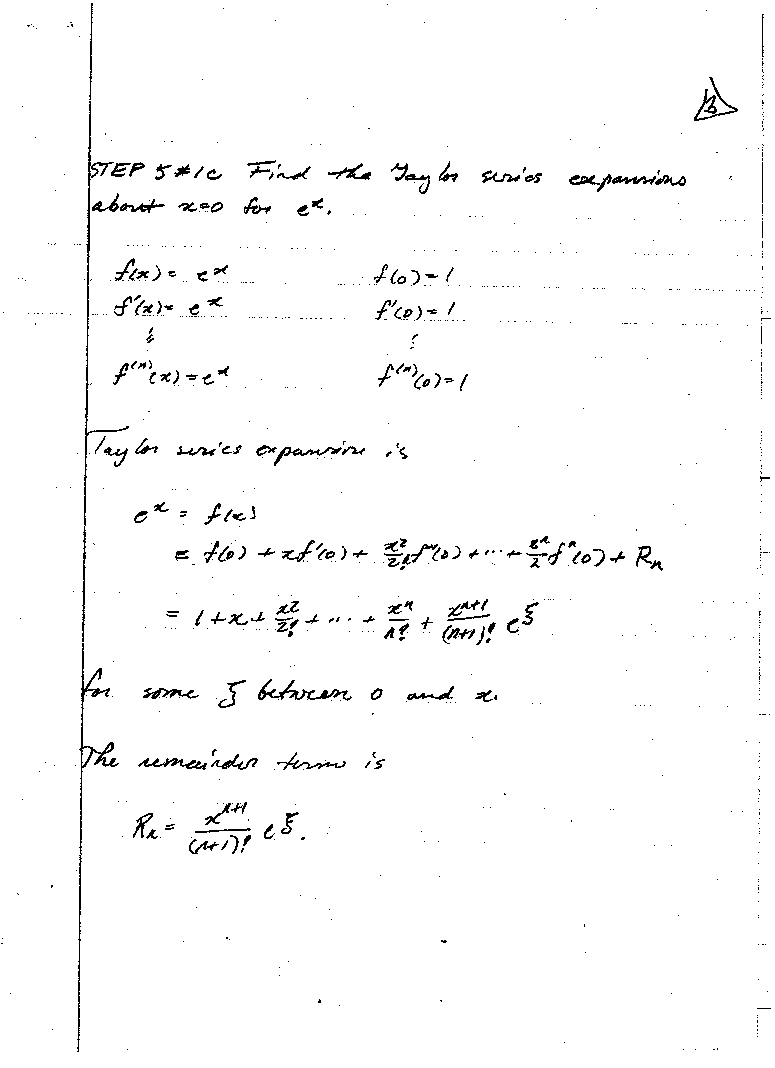 B
STEP 5 #1c Find the Taylor series expansions
about x=0 for eˣ.
f(x) = eˣ f(0) = 1
f'(x) = eˣ f'(0) = 1
⋮ ⋮
f⁽ⁿ⁾(x) = eˣ f⁽ⁿ⁾(0) = 1
Taylor series expansion is
eˣ = f(x)
= f(0) + xf'(0) + x²/2! f''(0) + ··· + xⁿ/2 fⁿ(0) + Rₙ
= 1 + x + x²/2! + ··· + xⁿ/n! + xⁿ⁺¹/(n+1)! e^ξ
for some ξ between 0 and x.
The remainder term is
Rₙ = xⁿ⁺¹/(n+1)! e^ξ.